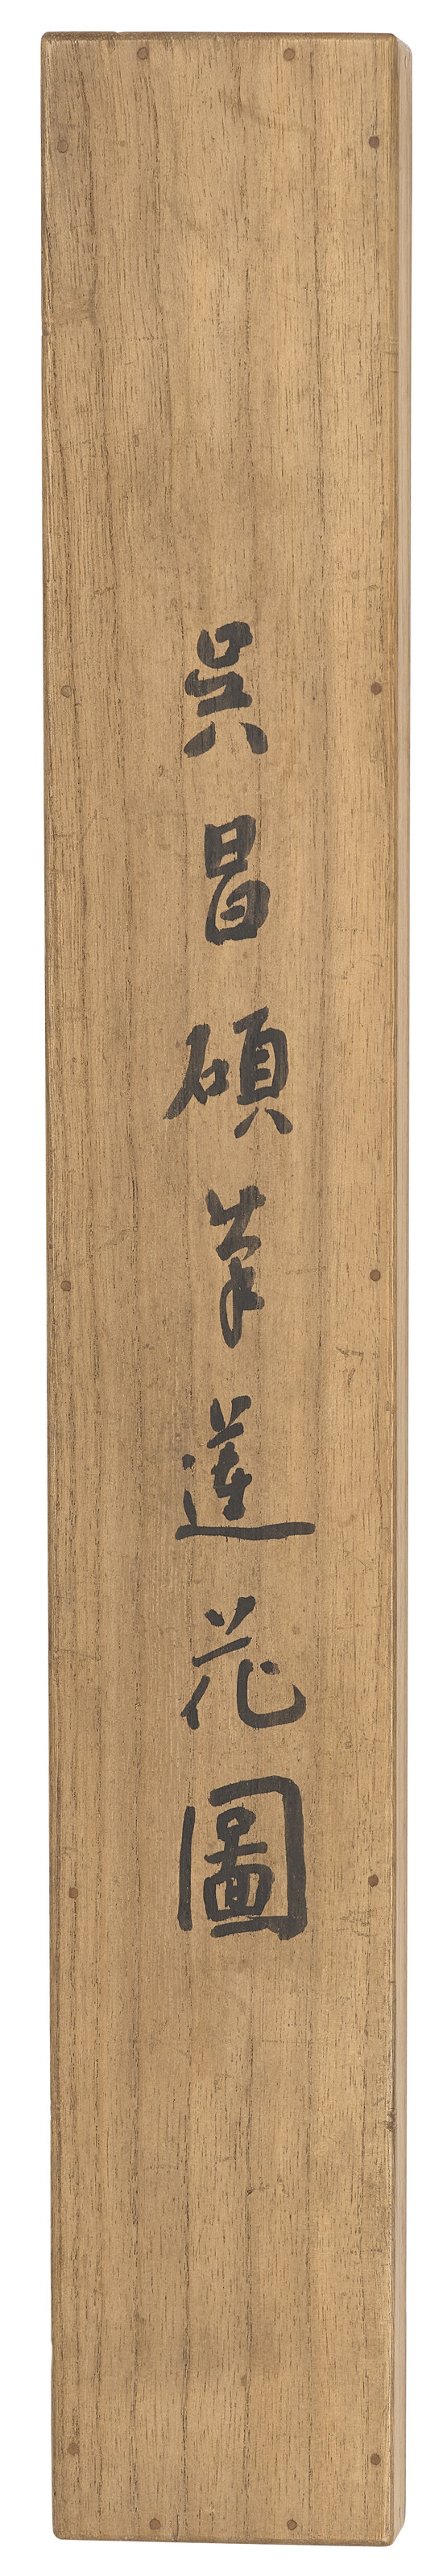 吳昌碩筆蓮花圖